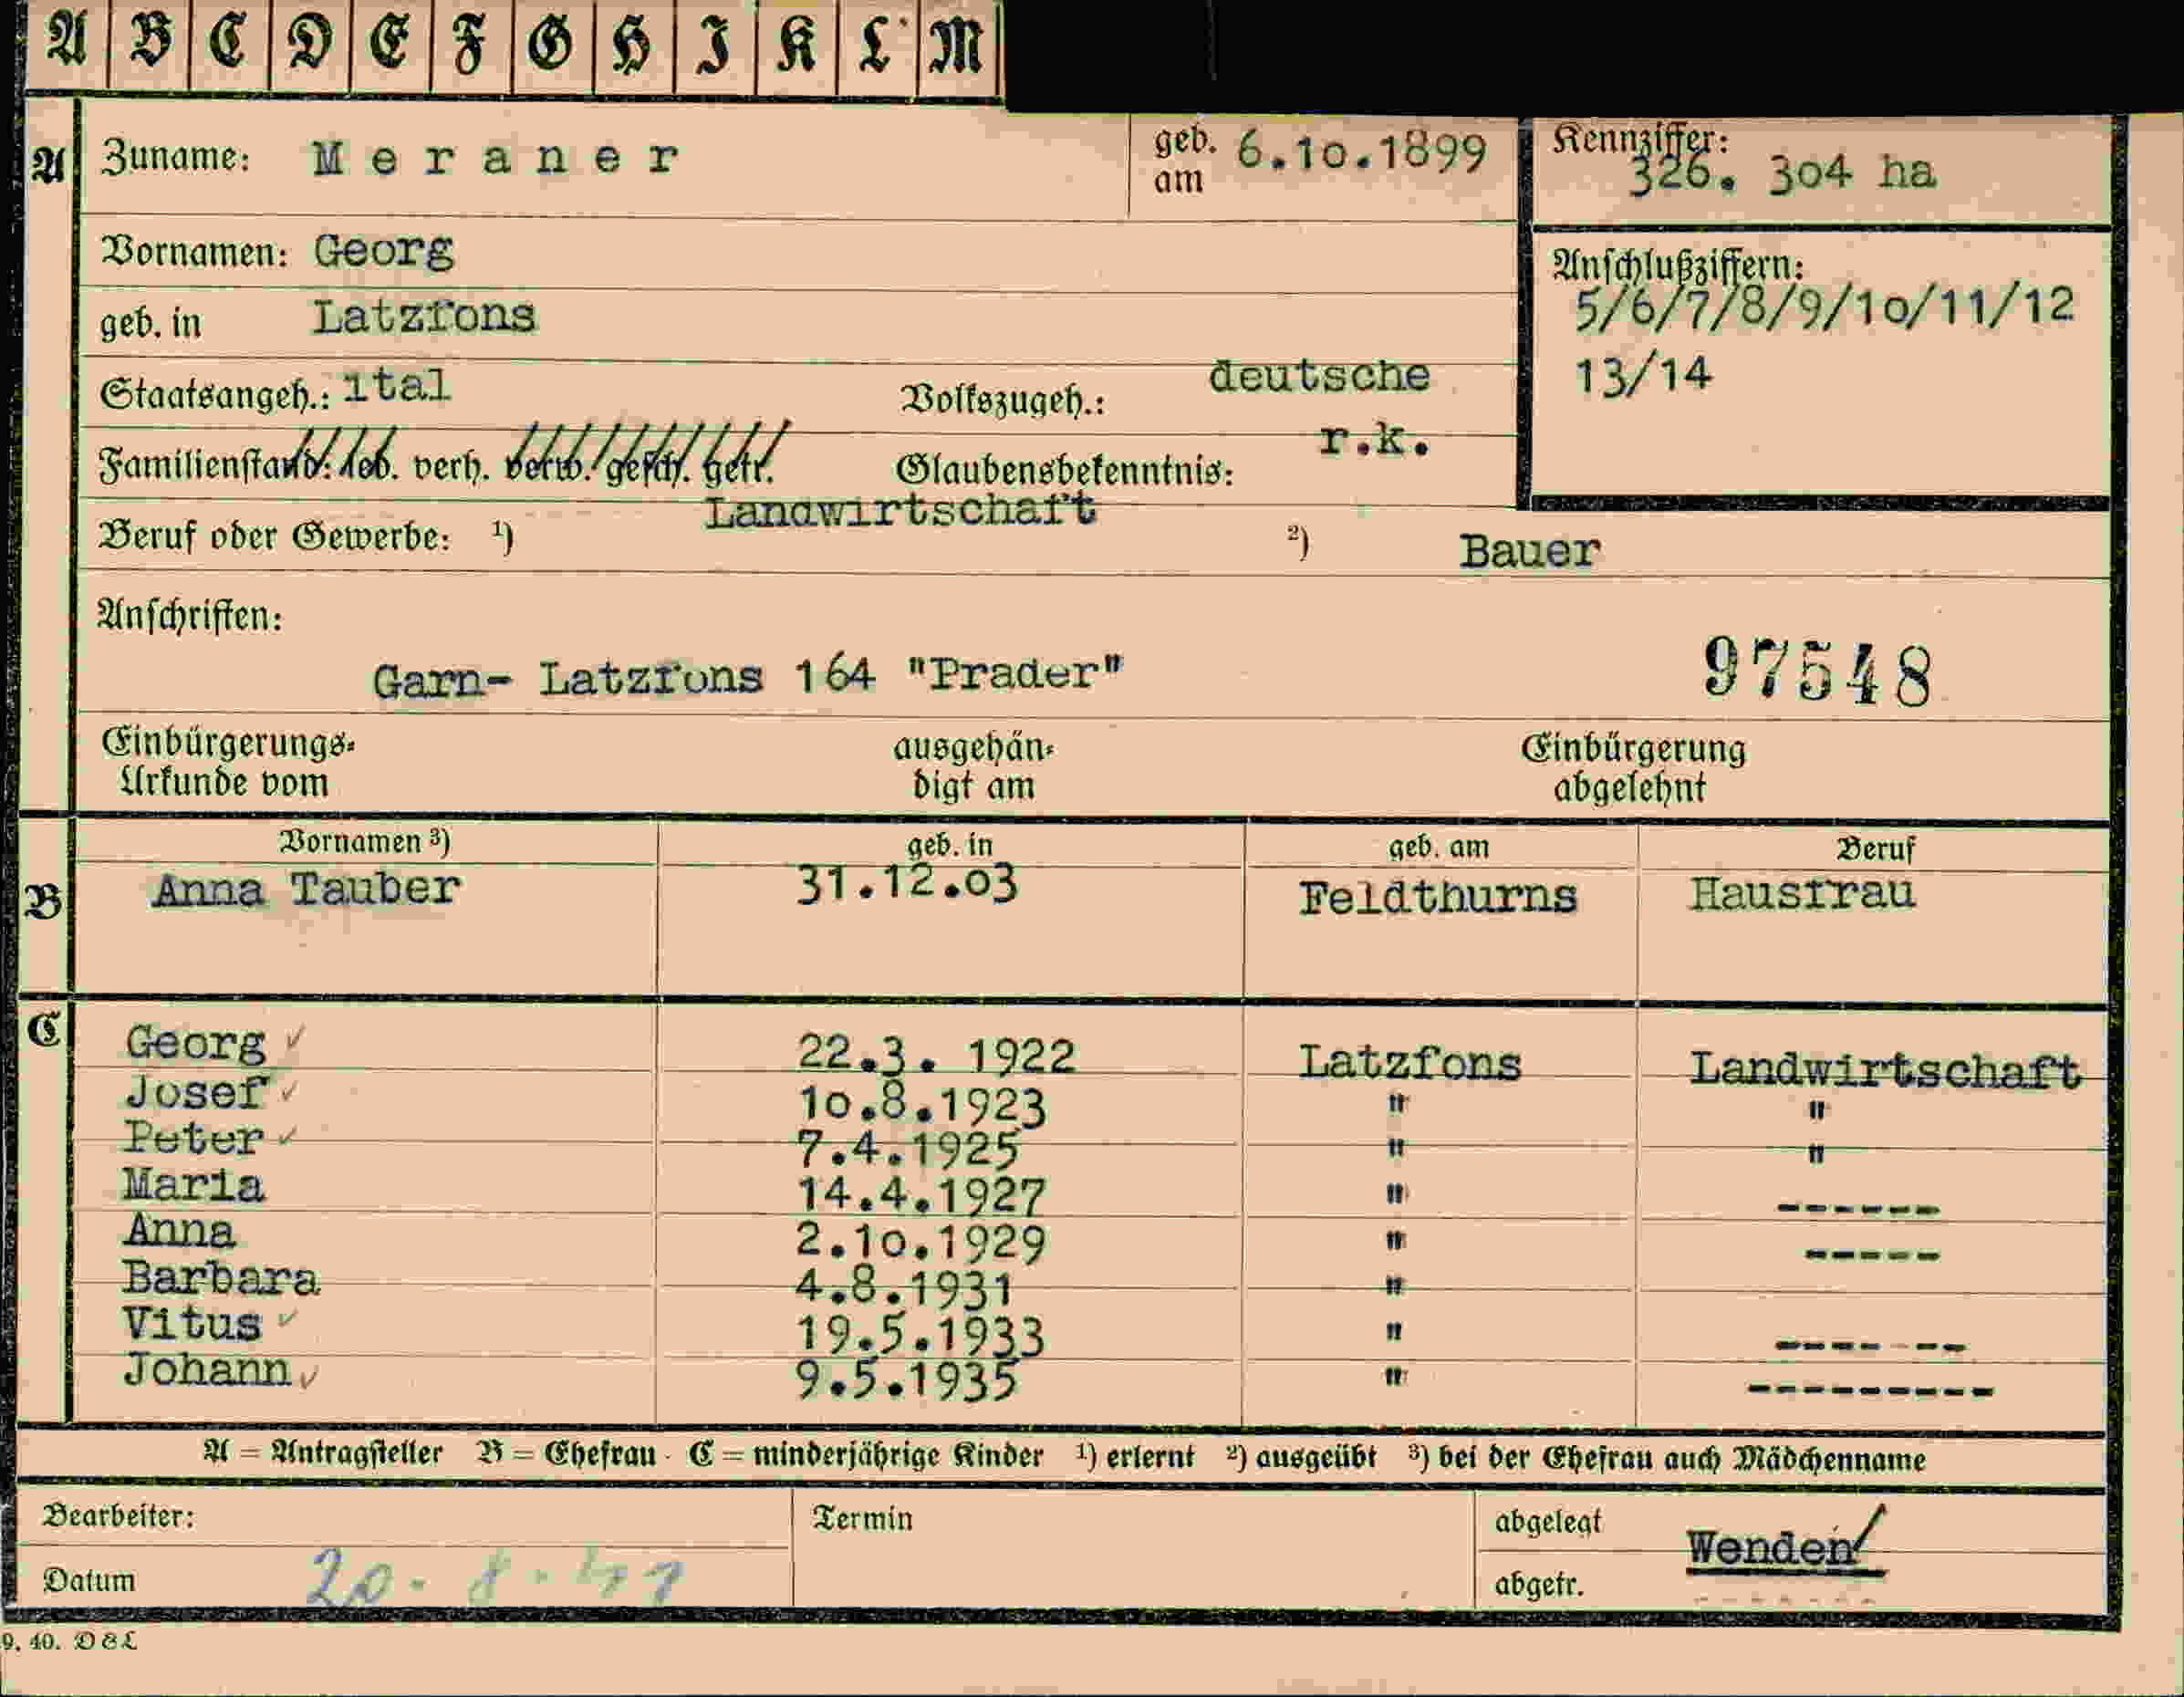 A B C D E F G H I K L M
A Zuname: Meraner geb. am 6.10.1899 Kennziffer: 326. 304 ha
Vornamen: Georg
Anschlußziffern:
5/6/7/8/9/10/11/12
13/14
geb. in Latzfons
Staatsangeh.: ital Volkszugeh.: deutsche
Familienstand: led. verh. verw. gesch. getr. Glaubensbekenntnis: r.k.
Beruf oder Gewerbe: 1) Landwirtschaft 2) Bauer
Anschriften:
Garn- Latzfons 164 "Prader" 97548
Einbürgerungs- ausgehän- Einbürgerung
Urkunde vom digt am abgelehnt
Vornamen 3) geb. in geb. am Beruf
B Anna Tauber 31.12.03 Feldthurns Hausfrau
C Georg ✓ 22.3. 1922 Latzfons Landwirtschaft
Josef ✓ 10.8.1923 " "
Peter ✓ 7.4.1925 " "
Maria 14.4.1927 " ------
Anna 2.10.1929 " -----
Barbara 4.8.1931 "
Vitus ✓ 19.5.1933 " ---- --
Johann ✓ 9.5.1935 " ---------
A = Antragsteller B = Ehefrau · C = minderjährige Kinder 1) erlernt 2) ausgeübt 3) bei der Ehefrau auch Mädchenname
Bearbeiter: Termin abgelegt Wenden/
Datum 20. 8. 41 abgetr.
9. 40. D & L